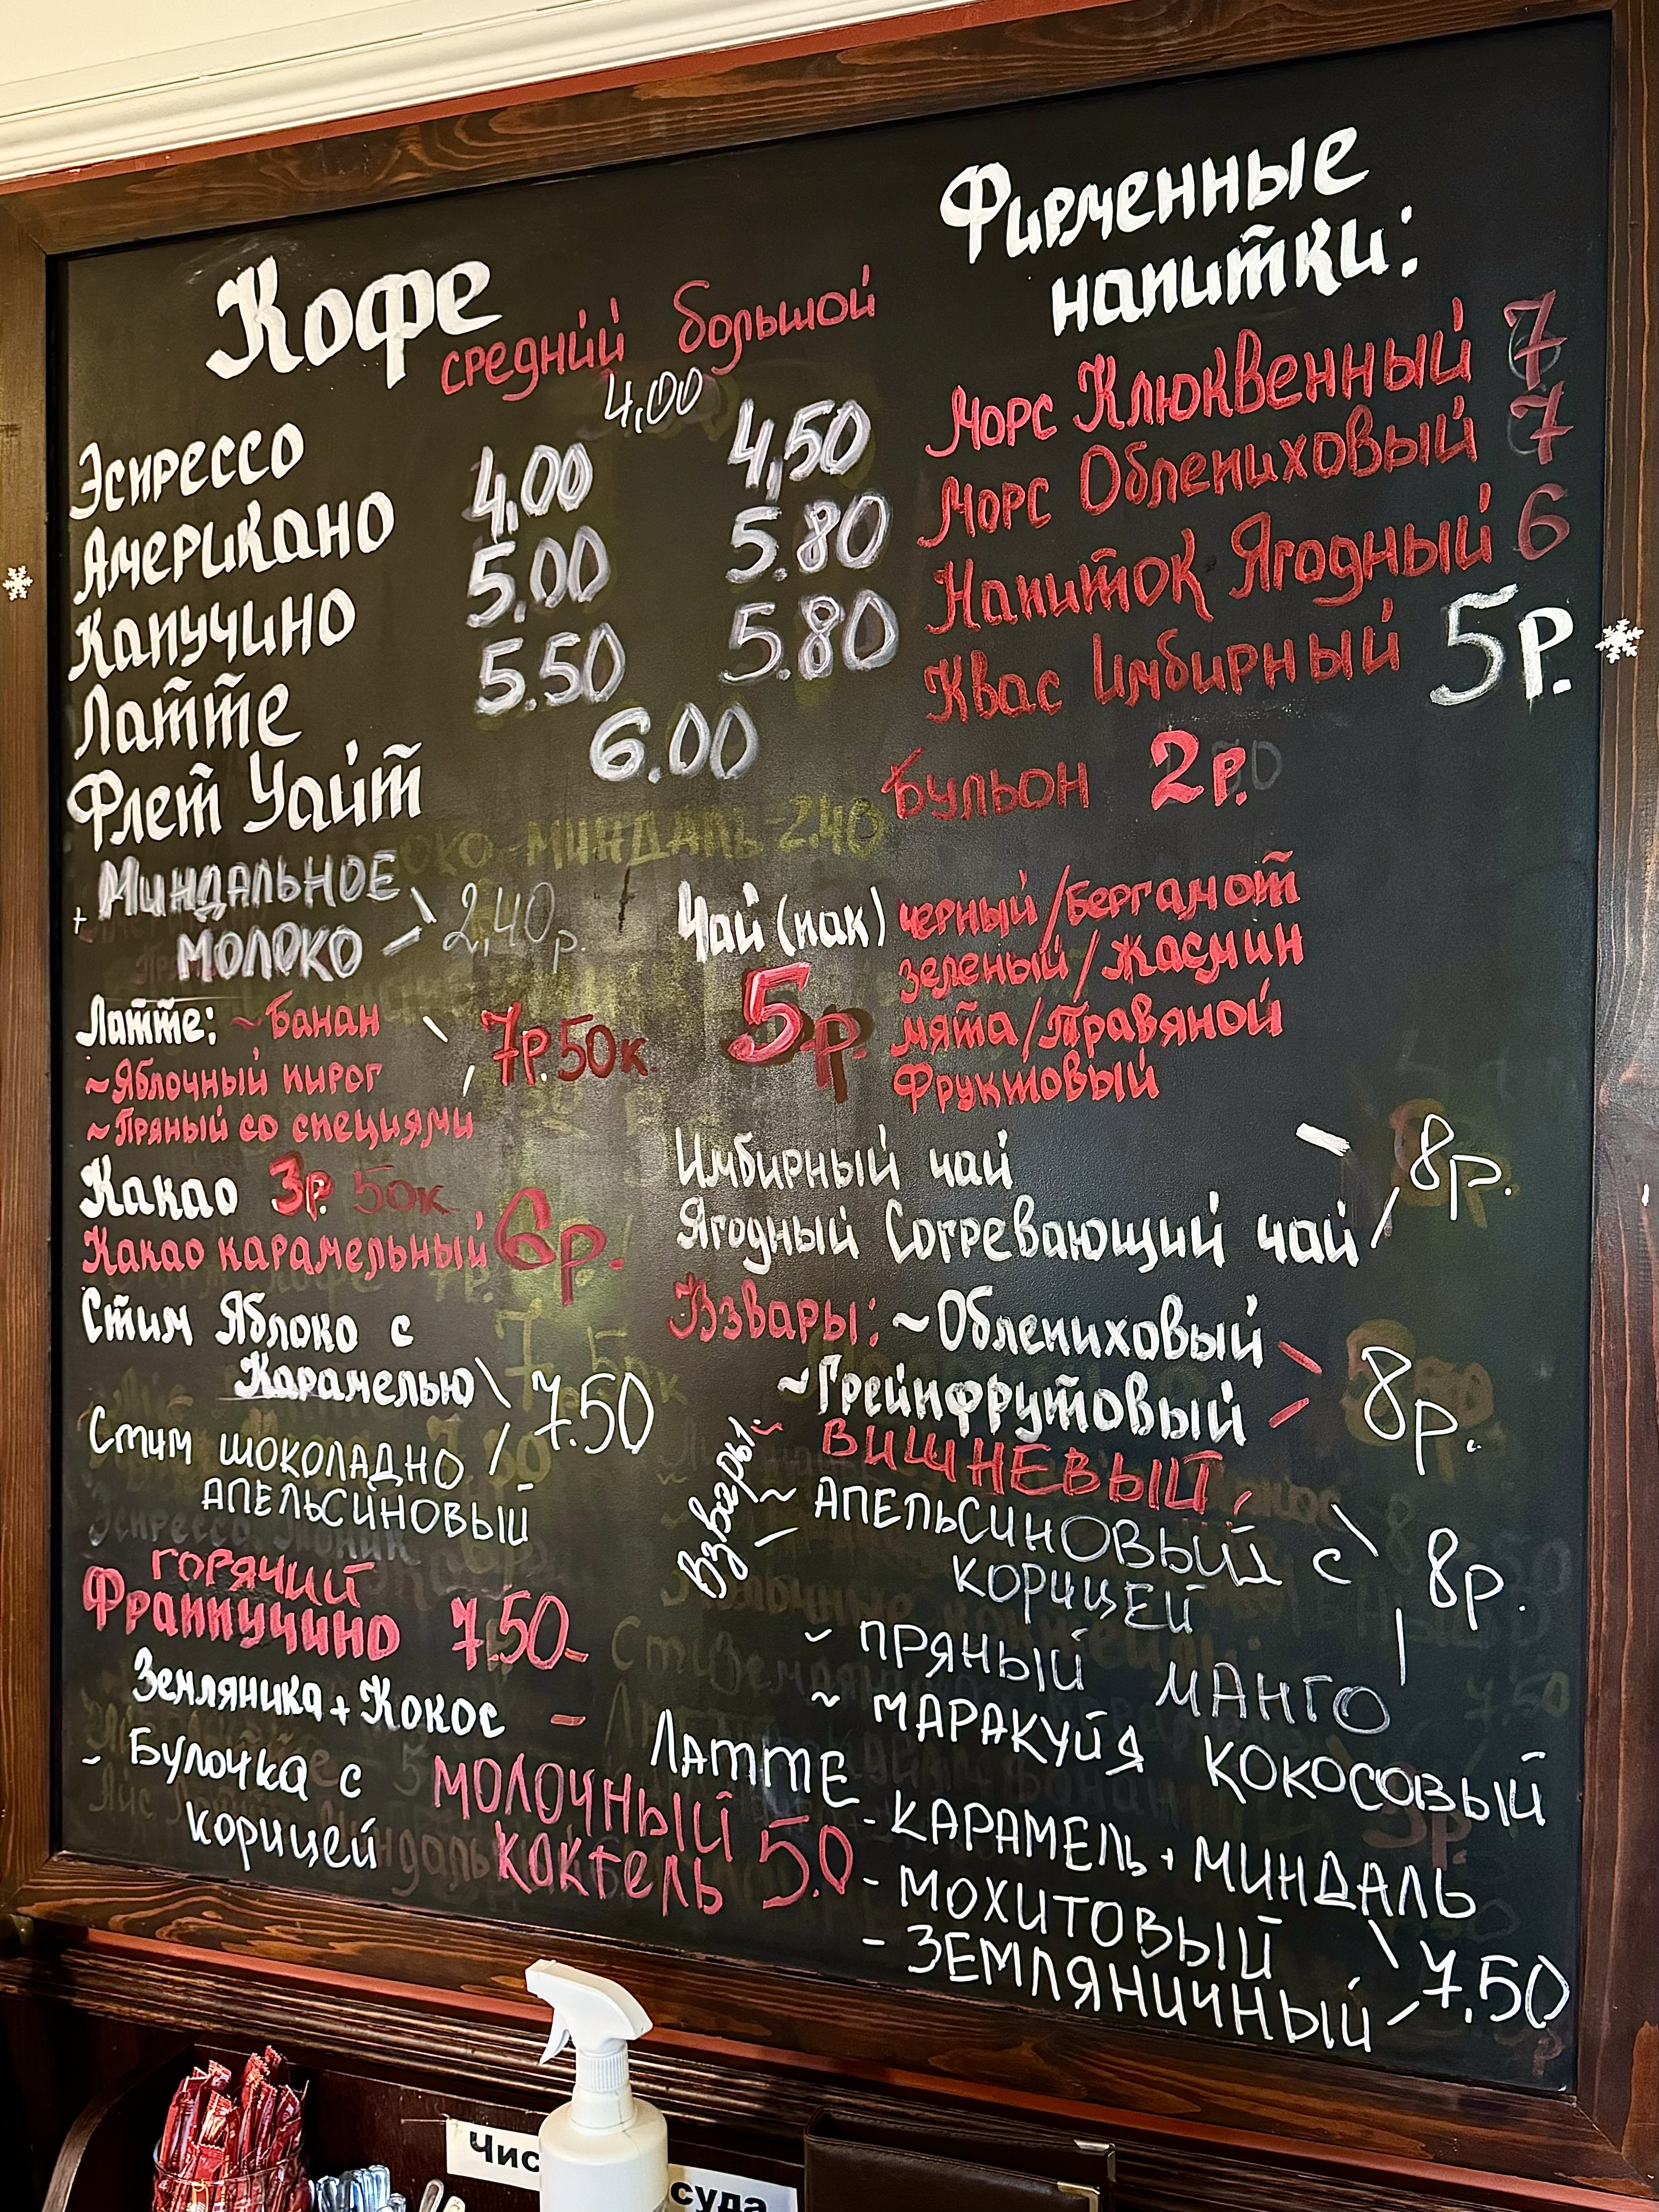 Кофе
средний большой
Эспрессо 4,00
Американо 4,00 4,50
Капучино 5.00 5.80
Латте 5.50 5.80
Флет Уайт 6.00
+ Миндальное
молоко 2,40р.
Латте: ~ Банан
~ Яблочный пирог 7р.50к.
~ Пряный со специями
Какао 3р. 50к
Какао карамельный 6р.
Стим Яблоко с
Карамелью 7.50
Стим шоколадно
апельсиновый
горячий
Фраппучино 7.50-
Земляника + Кокос -
- Булочка с
корицей
молочный
коктель 5.0
Фирменные
напитки:
Морс Клюквенный 7
Морс Облепиховый 7
Напиток Ягодный 6
Квас Имбирный 5р.
Бульон 2р.
Чай (пак) черный / Бергамот
зеленый / Жасмин
5р. мята / Травяной
Фруктовый
Имбирный чай 8р.
Ягодный Согревающий чай
Взвары: ~ Облепиховый
~ Грейпфрутовый 8р.
вишневый
Взвары:
~ апельсиновый с
корицей 8р.
~ пряный манго
~ маракуйя кокосовый
Латте
- карамель + миндаль
- мохитовый
- земляничный 7.50
Чис
суда